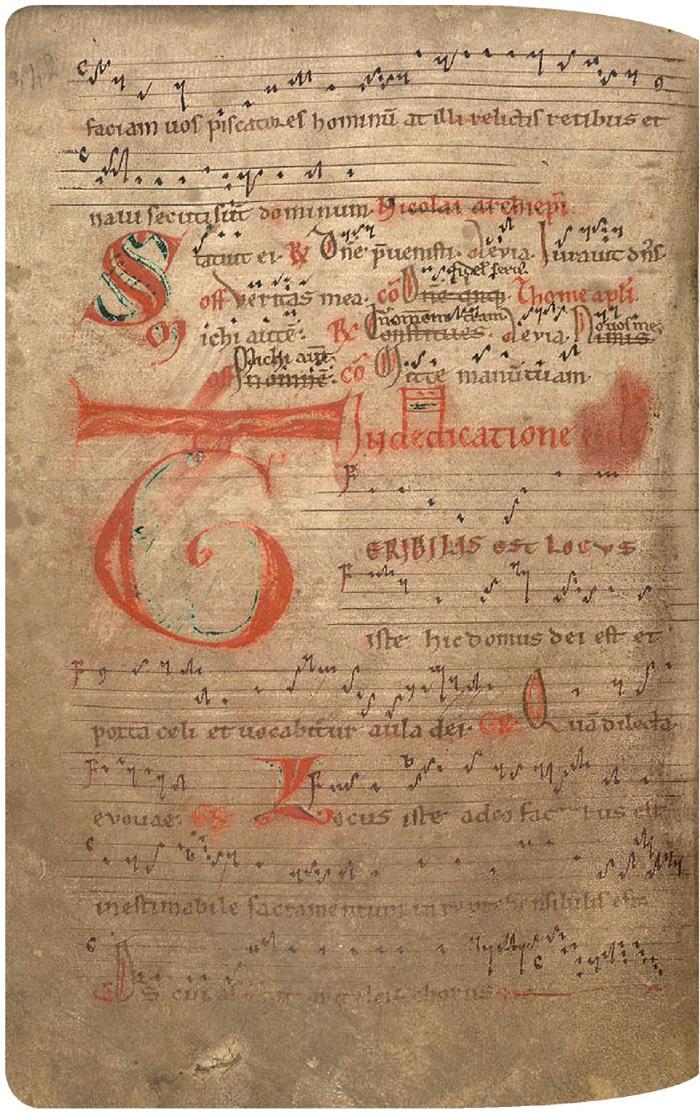 faciam uos piscatores hominū at illi relictis retibus et
naui secuti sūt dominum. Nicolai archiepi.
Statuit ei. R̷ Dne p̄uenisti. aleuia. Iurauit dn̄s.
off Veritas mea. cō Dne quq; Thome apłi.
Michi autē. R̷ Constitues. aleuia. Nimis
off In omnē. cō Mitte manū tuam.
In dedicatione
TERIBILIS est locvs
iste hic domus dei est et
porta celi et uocabit̄ur aula dei. Quā dilecta.
evovae. Locus iste a deo factus est
inestimabile sacramentum irreprehensibilis est.
chorus